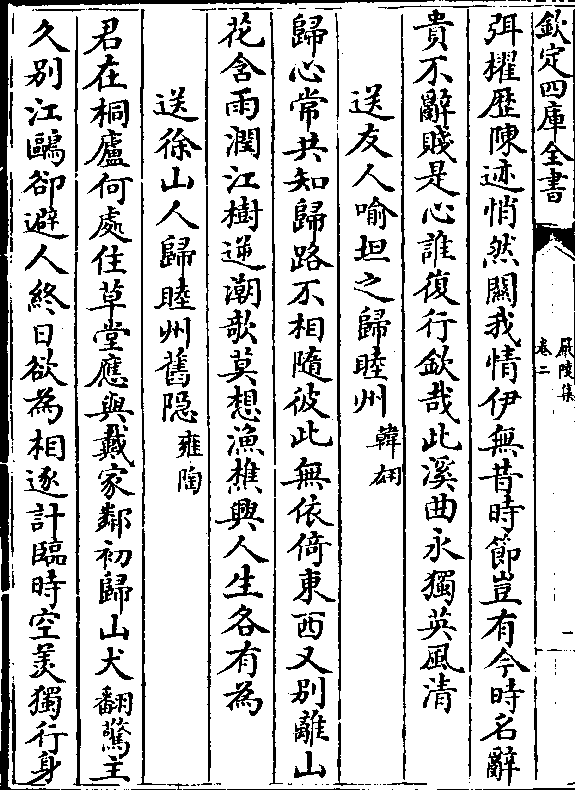 欽定四庫全書
嚴陵集
卷二
一
弭櫂歴陳迹悄然關我情伊無昔時節豈有今時名辭
貴不辭賤是心誰復行欽哉此溪曲永獨英風清
送友人喻坦之歸睦州 韓翃
歸心常共知歸路不相隨彼此無依倚東西又别離山
花含雨潤江樹逆潮欹莫想漁樵興人生各有為
送徐山人歸睦州舊隠 雍陶
君在桐廬何處住草堂應與戴家鄰初歸山犬翻驚主
久别江鷗卻避人終日欲為相逐計臨時空羡獨行身